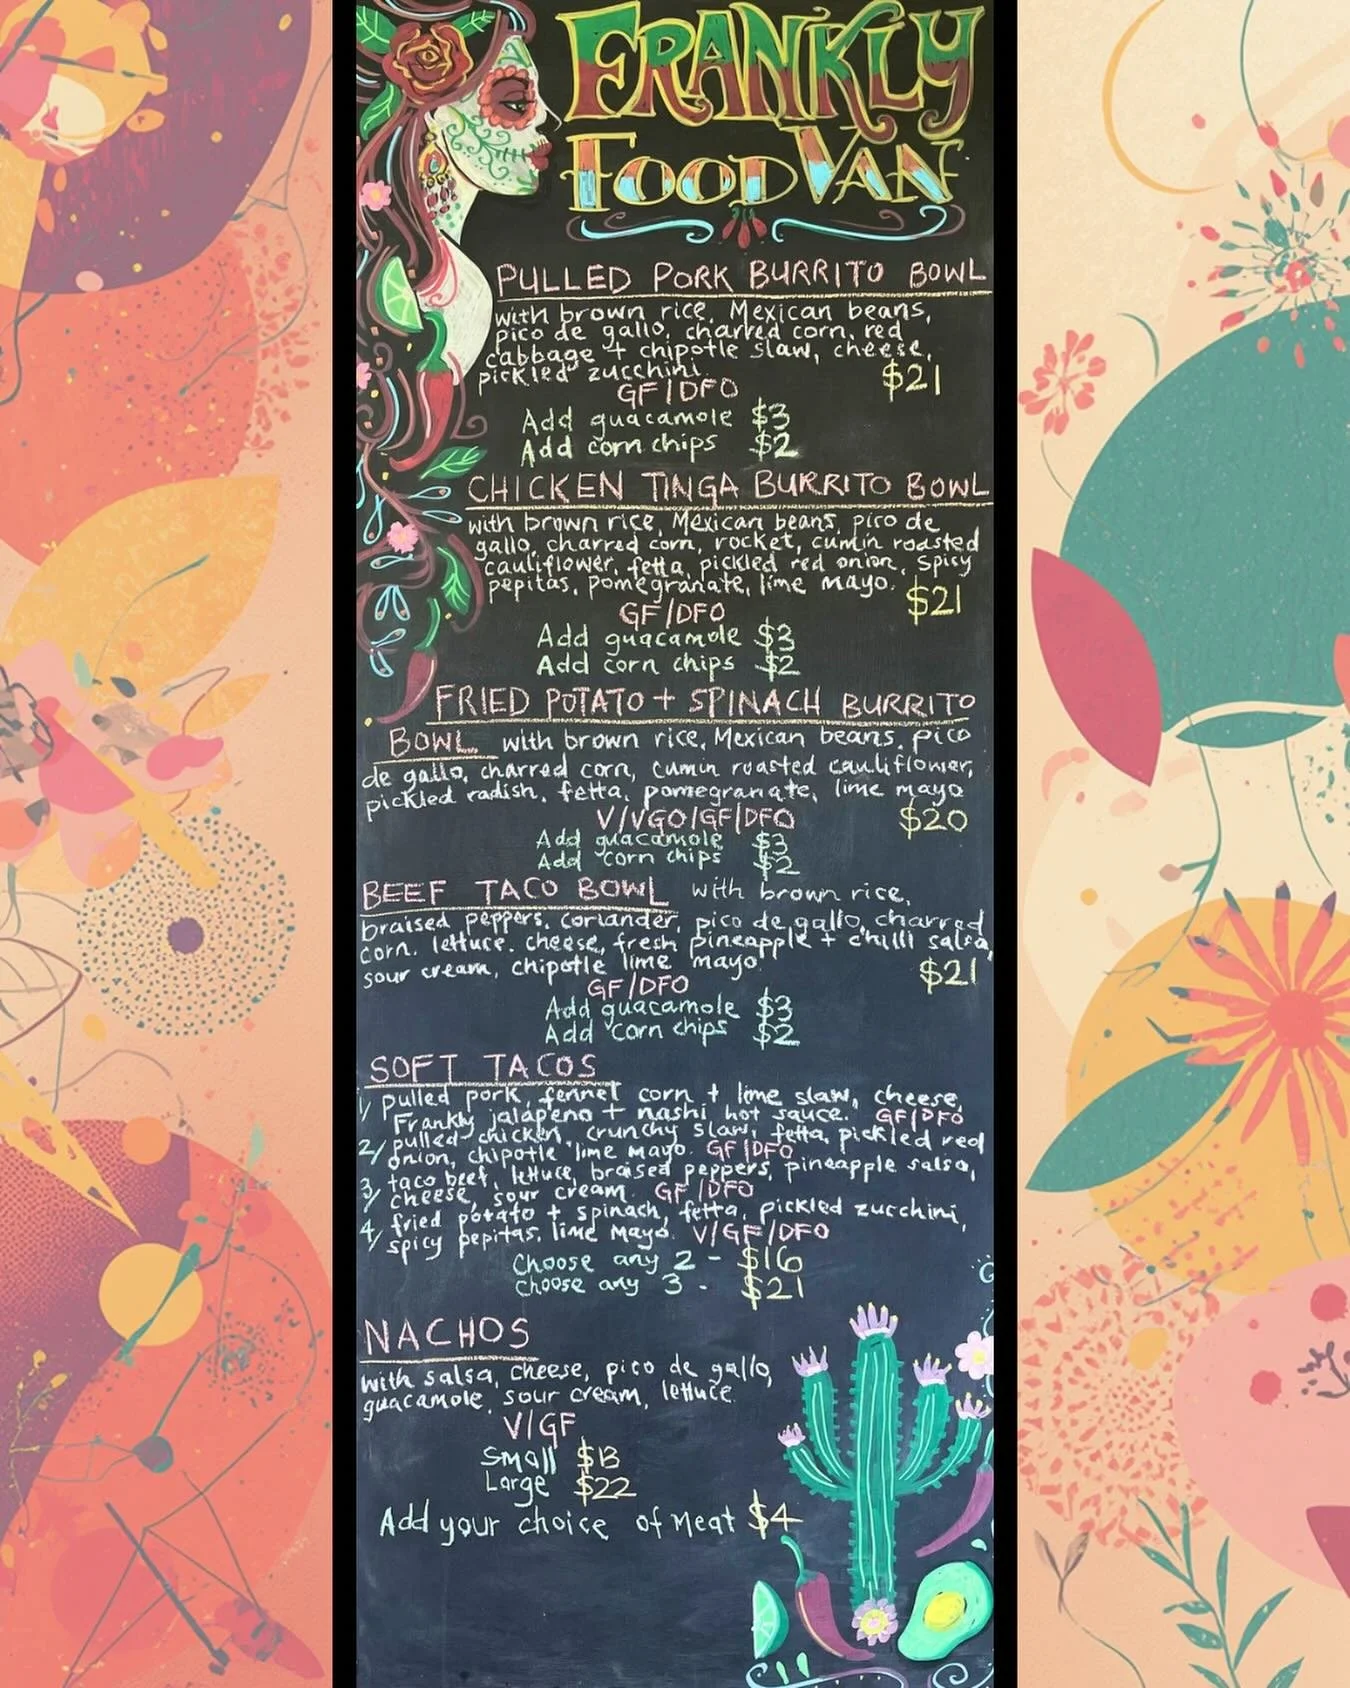 FRANKLY
FOOD VAN
PULLED PORK BURRITO BOWL
with brown rice, Mexican beans,
pico de gallo, charred corn, red
cabbage + chipotle slaw, cheese,
pickled zucchini.
$21
GF/DFO
Add guacamole $3
Add corn chips $2
CHICKEN TINGA BURRITO BOWL
with brown rice, Mexican beans, pico de
gallo, charred corn, rocket, cumin roasted
cauliflower, fetta, pickled red onion, spicy
pepitas, pomegranate, lime mayo.
$21
GF/DFO
Add guacamole $3
Add corn chips $2
FRIED POTATO + SPINACH BURRITO
BOWL with brown rice, Mexican beans, pico
de gallo, charred corn, cumin roasted cauliflower,
pickled radish, fetta, pomegranate, lime mayo
V/VGO/GF/DFO $20
Add guacamole $3
Add corn chips $2
BEEF TACO BOWL with brown rice,
braised peppers, coriander, pico de gallo, charred
corn, lettuce, cheese, fresh pineapple + chilli salsa,
sour cream, chipotle lime mayo.
$21
GF/DFO
Add guacamole $3
Add corn chips $2
SOFT TACOS
1/ pulled pork, fennel corn + lime slaw, cheese,
Frankly jalapeno + nashi hot sauce. GF/DFO
2/ pulled chicken, crunchy slaw, fetta, pickled red
onion, chipotle lime mayo. GF/DFO
3/ taco beef, lettuce, braised peppers, pineapple salsa,
cheese, sour cream. GF/DFO
4/ fried potato + spinach, fetta, pickled zucchini,
spicy pepitas, lime mayo. V/GF/DFO
Choose any 2 - $16
Choose any 3 - $21
NACHOS
with salsa, cheese, pico de gallo,
guacamole, sour cream, lettuce.
V/GF
Small $13
Large $22
Add your choice of Meat $4